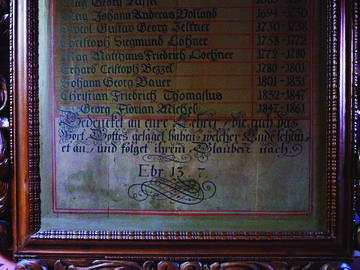 Johann Andreas Volland 1694-1730
Gustav Georg Zeltner 1730-1738
Christoph Siegmund Löhner 1738-1772
Matthäus Friedrich Lochner 1772-1780
Erhard Cristoph Bezzel 1780-1801
Johann Georg Bauer 1801-1831
Christian Friedrich Thomasius 1832-1847
Georg Florian Michel 1847-1861
Gedencket an eure Lehrer, die euch das
Wort Gottes gesaget haben, welcher Ende schau,
et an, und folget ihrem Glauben nach.
Ebr. 13. 7.